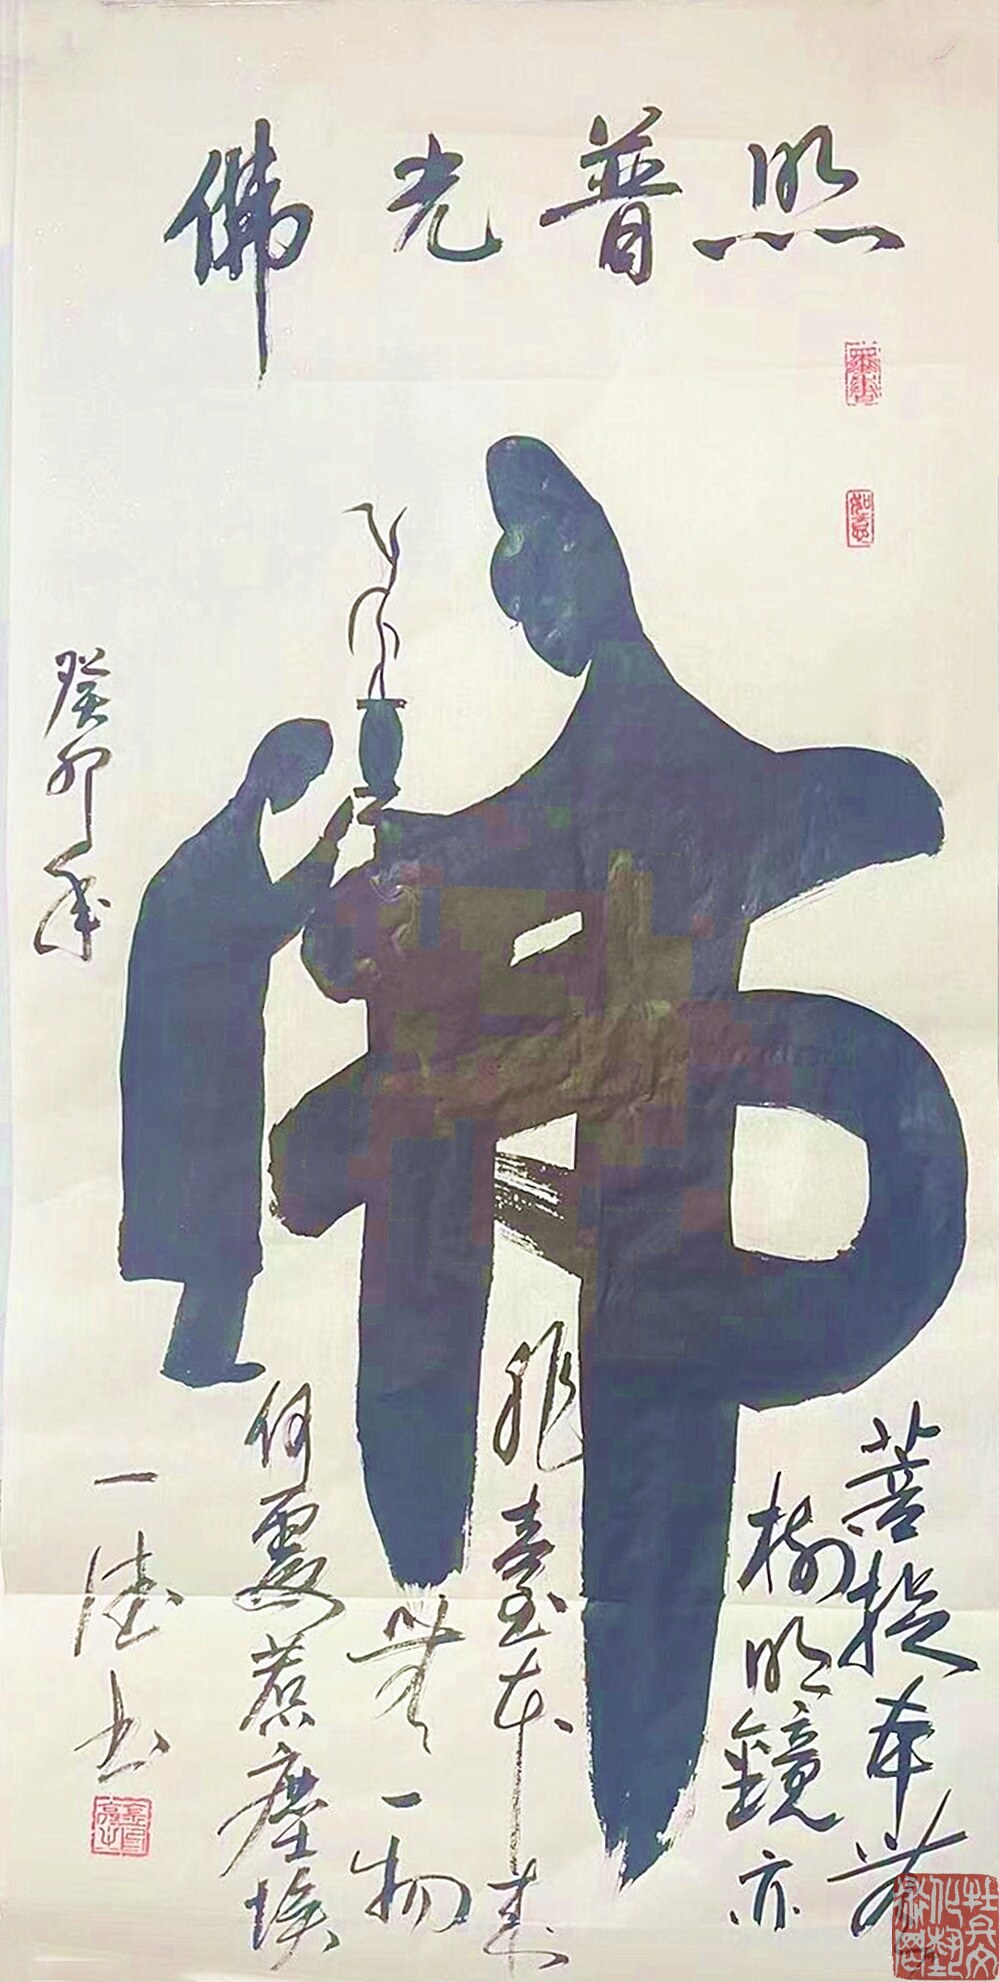 佛光普照
佛
如意
菩提本無
樹明鏡亦
非臺本來
無一物
何處惹塵埃
癸卯年
一德书